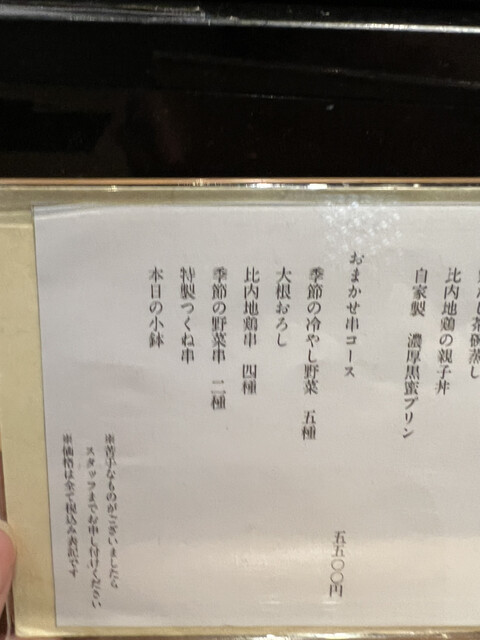 茶碗蒸し
比内地鶏の親子丼
自家製　濃厚黒蜜プリン
おまかせ串コース
五五〇〇円
季節の冷やし野菜　五種
大根おろし
比内地鶏串　四種
季節の野菜串　二種
特製つくね串
本日の小鉢
※苦手なものがございましたら
スタッフまでお申し付けください
※価格は全て税込み表記です